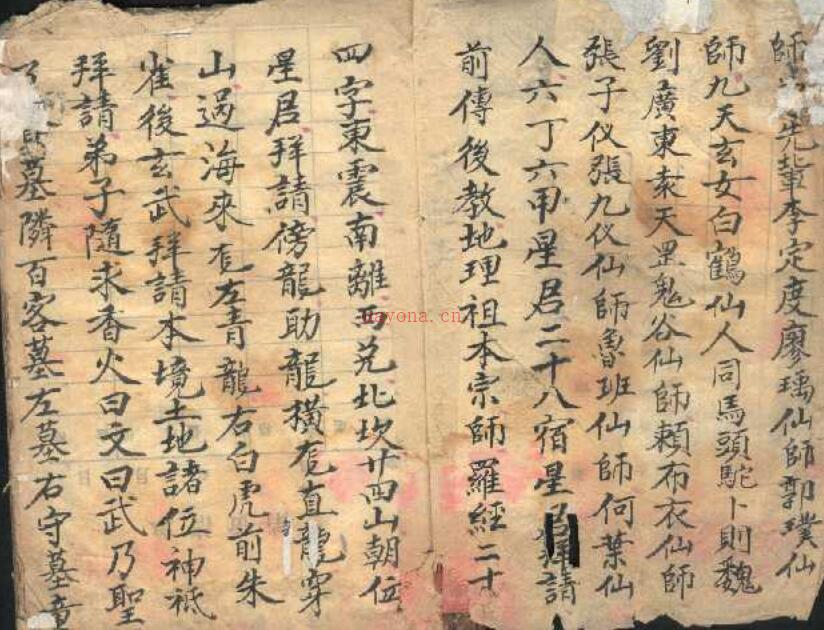 師
先輩李定度廖瑀仙師郭璞仙
師九天玄女白鶴仙人同馬頭駝卜則魏
劉廣東袁天罡鬼谷仙師頼布衣仙師
張子仪張九仪仙師魯班仙師何葉仙
人六丁六甲星君二十八宿星君拜請
前傳後教地理祖本宗師羅經二十
四字東震南離西兑北坎廿四山朝位
星居拜請傍龍助龍橫龙直龍穿
山過海來龙左青龍右白虎前朱
雀後玄武拜請本境土地諸位神祇
拜請弟子隨求香火曰文曰武乃聖
墓隣百客墓左墓右守墓童
nayona.cn